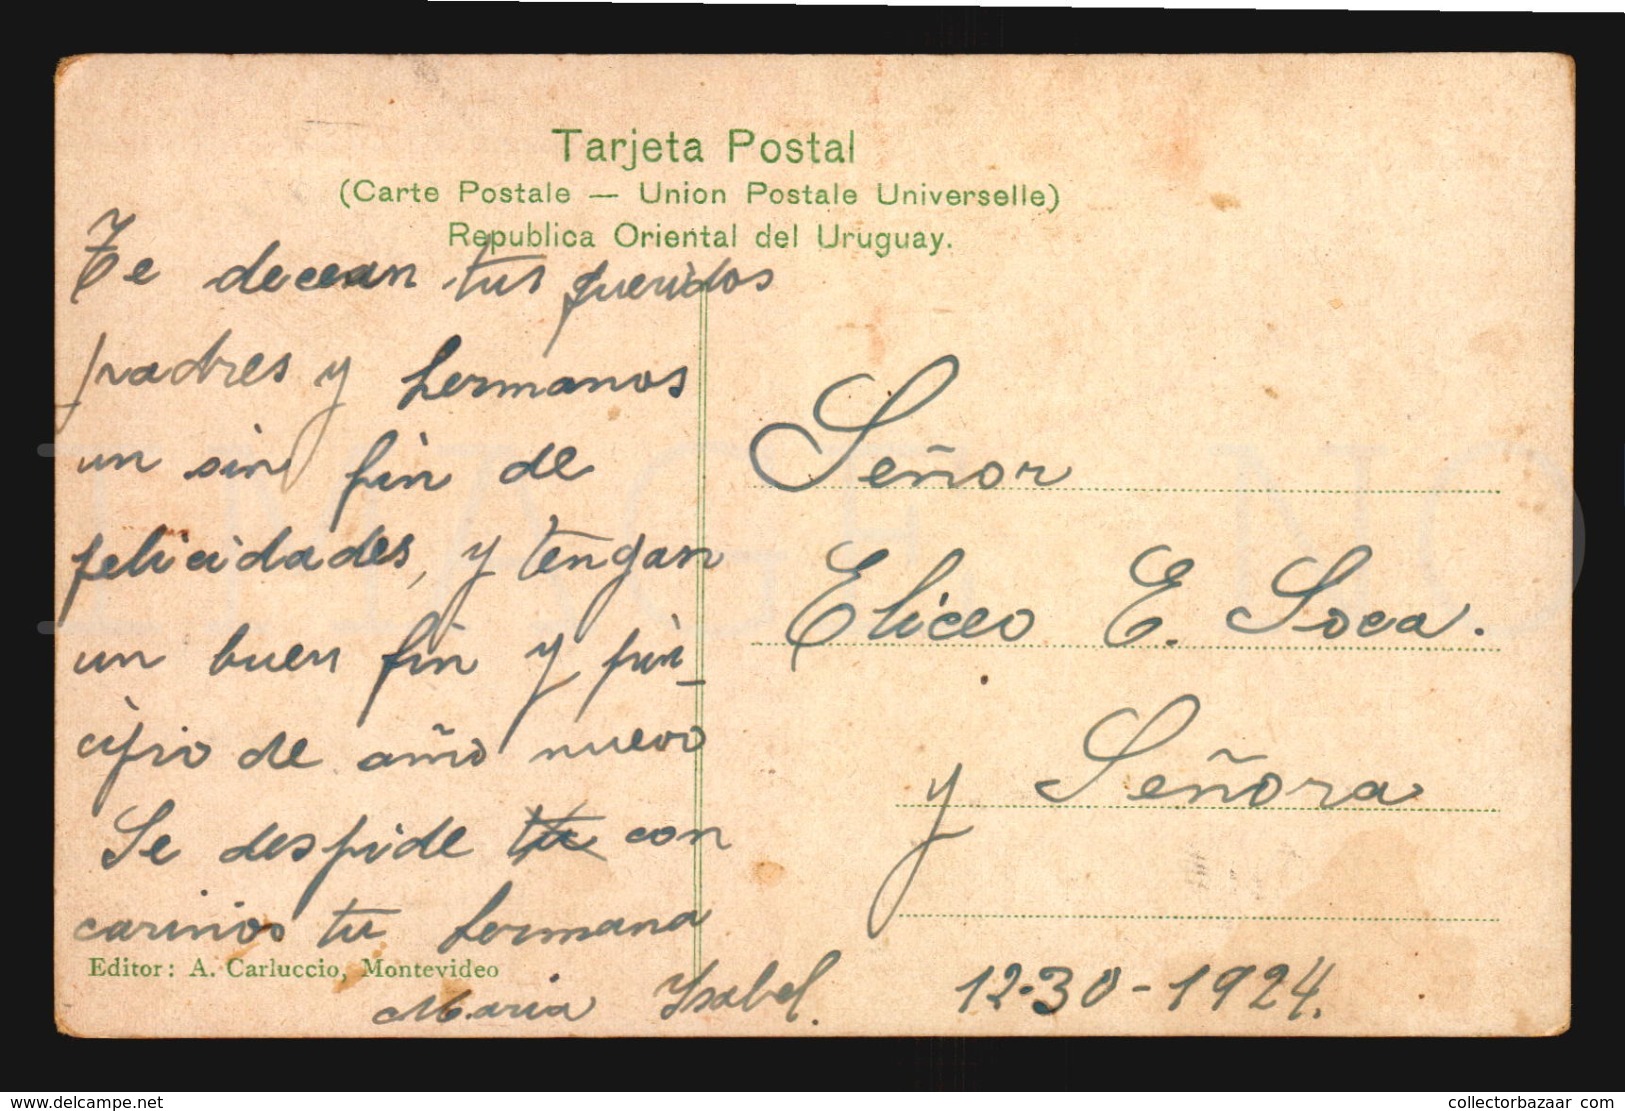 Tarjeta Postal
(Carte Postale — Union Postale Universelle)
Republica Oriental del Uruguay.
Te decean tus queridos
padres y hermanos
un sin fin de
felicidades, y tengan
un buen fin y prin
cipio de año nuevo
Se despide tu con
cariños tu hermana
Maria Ysabel.
Editor: A. Carluccio, Montevideo
Señor
Eliceo E. Soca.
y Señora
12-30-1924.
www.delcampe.net
collectorbazaar com